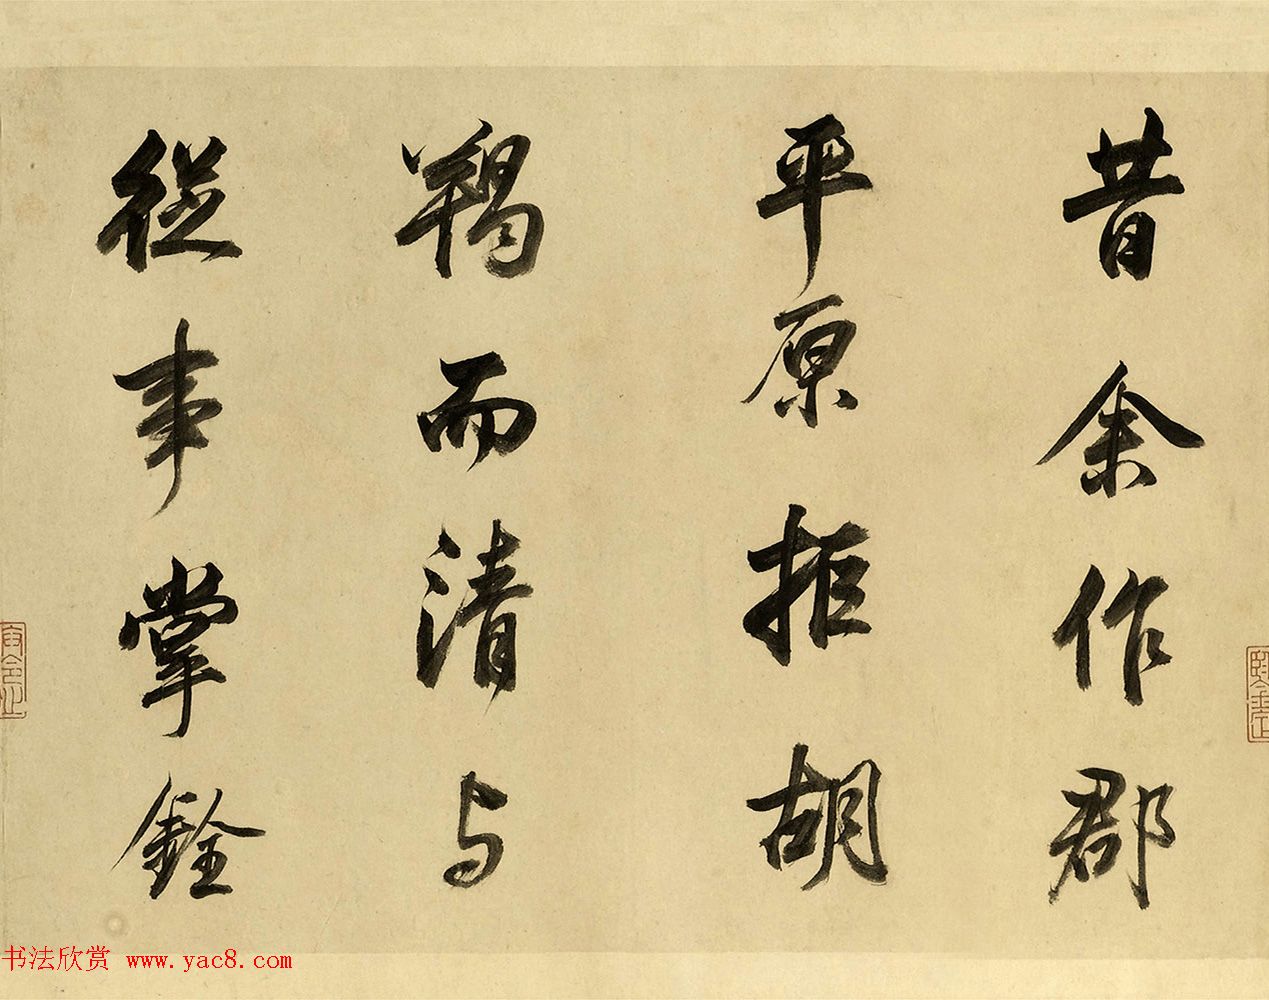 昔余作郡
平原拒胡
羯而清与
從事掌銓
书法欣赏 www.yac8.com